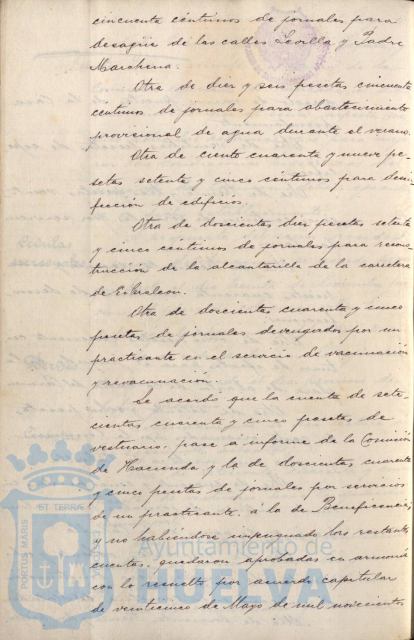 cincuenta céntimos de jornales para
desagüe de las calles Sevilla y Padre
Marchena.
Otra de diez y seis pesetas cincuenta
centimos de jornales para abastecimiento
provisional de agua durante el verano.
Otra de ciento cuarenta y nueve pe-
setas setenta y cinco céntimos para desin-
fección de edificios.
Otra de doscientas diez pesetas setenta
y cinco céntimos de jornales para recons-
trucción de la alcantarilla de la carretera
de Gibraleon.
Otra de doscientas cuarenta y cinco
pesetas de jornales devengados por un
practicante en el servicio de vacunación
y revacunación.
Se acordó que la cuenta de sete-
cientas cuarenta y cinco pesetas de
vestuario, pase a informe de la Comisión
de Hacienda y la de doscientas cuarenta
y cinco pesetas de jornales por servicios
de un practicante, a la de Beneficencia,
y no habiéndose impugnado las restantes
cuentas, quedaron aprobadas en armonía
con lo resuelto por acuerdo capitular
de veinticinco de Mayo de mil novecientos
PORTUS MARIS
ET TERRAE
Ayuntamiento de
HUELVA